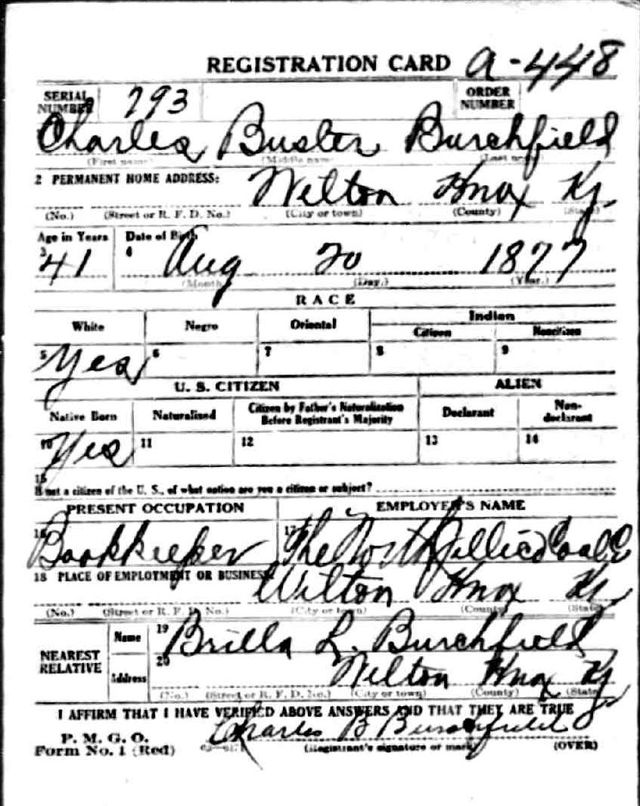 REGISTRATION CARD A-448
SERIAL NUMBER 793 ORDER NUMBER
Charles Buster Burchfield
(First name) (Middle name) (Last name)
2 PERMANENT HOME ADDRESS: Wilton Knox Ky.
(No.) (Street or R. F. D. No.) (City or town) (County) (State)
Age in Years Date of Birth
3 41 4 Aug 20 1877
(Month.) (Day.) (Year.)
RACE
White Negro Oriental Indian
Citizen Noncitizen
5 Yes 6 7 8 9
U. S. CITIZEN ALIEN
Native Born Naturalized Citizen by Father's Naturalization Before Registrant's Majority Declarant Non-declarant
10 Yes 11 12 13 14
15
If not a citizen of the U. S., of what nation are you a citizen or subject?
PRESENT OCCUPATION EMPLOYER'S NAME
16 Bookkeeper 17 The North Jellico Coal Co
18 PLACE OF EMPLOYMENT OR BUSINESS: Wilton Knox Ky
(No.) (Street or R. F. D. No.) (City or town) (County) (State)
NEAREST RELATIVE Name 19 Brilla L. Burchfield
Address 20 Wilton Knox Ky
(No.) (Street or R. F. D. No.) (City or town) (County) (State)
I AFFIRM THAT I HAVE VERIFIED ABOVE ANSWERS AND THAT THEY ARE TRUE
P. M. G. O. Charles B Burchfield
Form No. 1 (Red) (Registrant's signature or mark) (OVER)